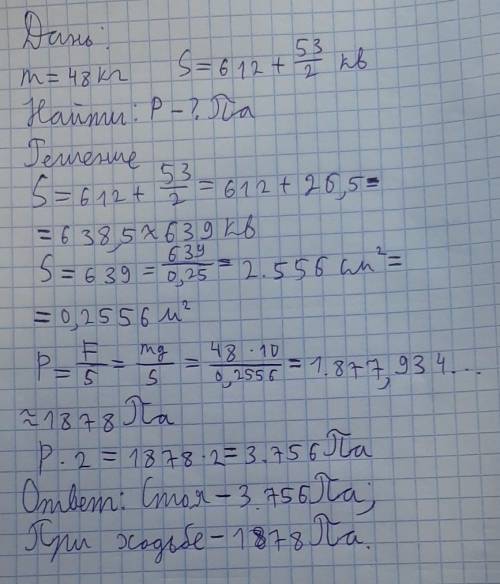 Дань:
m = 48 кг S = 612 + 53/2 кв
Найти: P - ? Па
Решение
S = 612 + 53/2 = 612 + 26,5 =
= 638,5 ≈ 639 кв
S = 639 = 639/0,25 = 2.556 см² =
= 0,2556 м²
P = F/S = mg/S = 48 · 10/0,2556 = 1.877,934...
≈ 1878 Па
P · 2 = 1878 · 2 = 3.756 Па
Ответ: Стоя - 3.756 Па;
При ходьбе - 1878 Па.